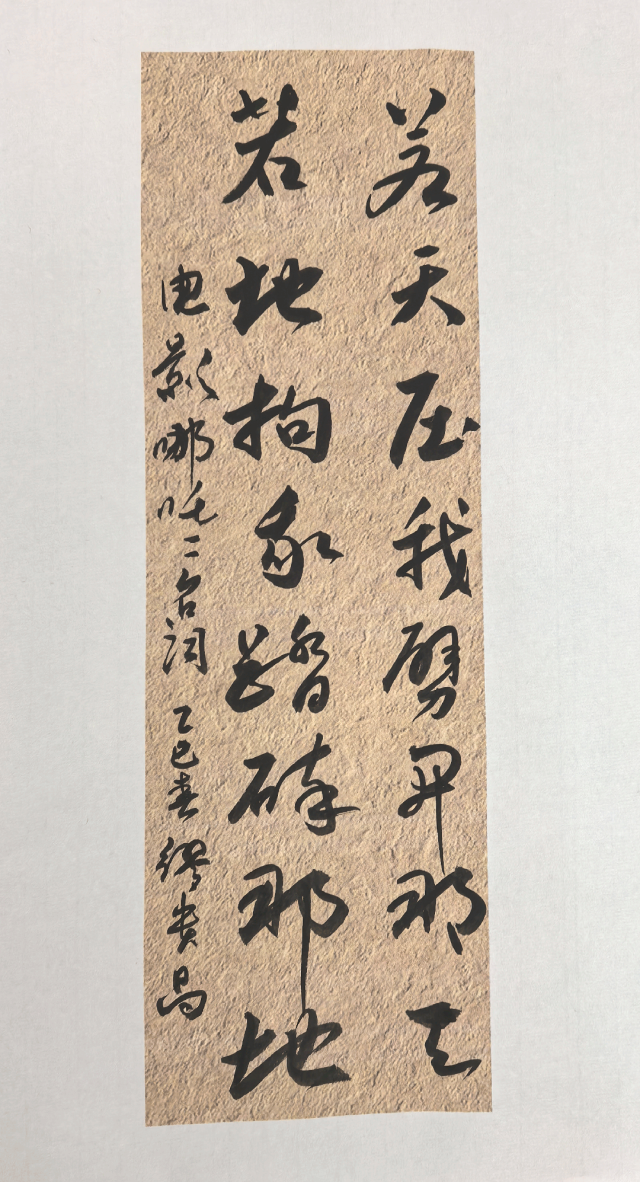 若天压我劈开那天
若地拘我踏碎那地
电影哪吒二台词 乙巳春 缪贵昌